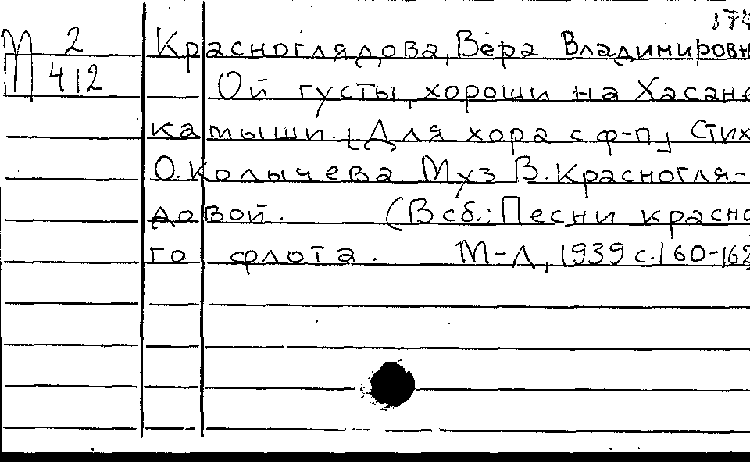 М 2
412
Красноглядова, Вера Владимировн
Ой густы, хороши на Хасане
камыши [Для хора с ф-п] Стих
О. Колычева Муз В. Красногля-
довой. (В сб.: Песни красно
го флота. М-Л, 1939 с. 160-162